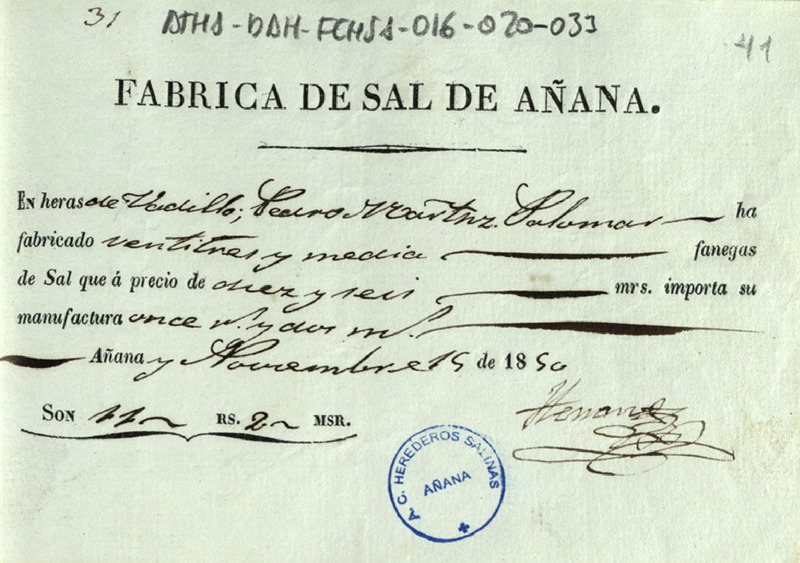 31 ATHA-DAH-FCHSA-016-020-033
41
FABRICA DE SAL DE AÑANA.
EN heras de Vadillo; Pedro Martnz. Palomar ha
fabricado ventitres y media fanegas
de Sal que á precio de diez y seis mrs. importa su
manufactura once rs. y dos ms.
Añana y Noviembre 15 de 1850
SON 11 RS. 2 MSR.
A. C. HEREDEROS SALINAS
AÑANA